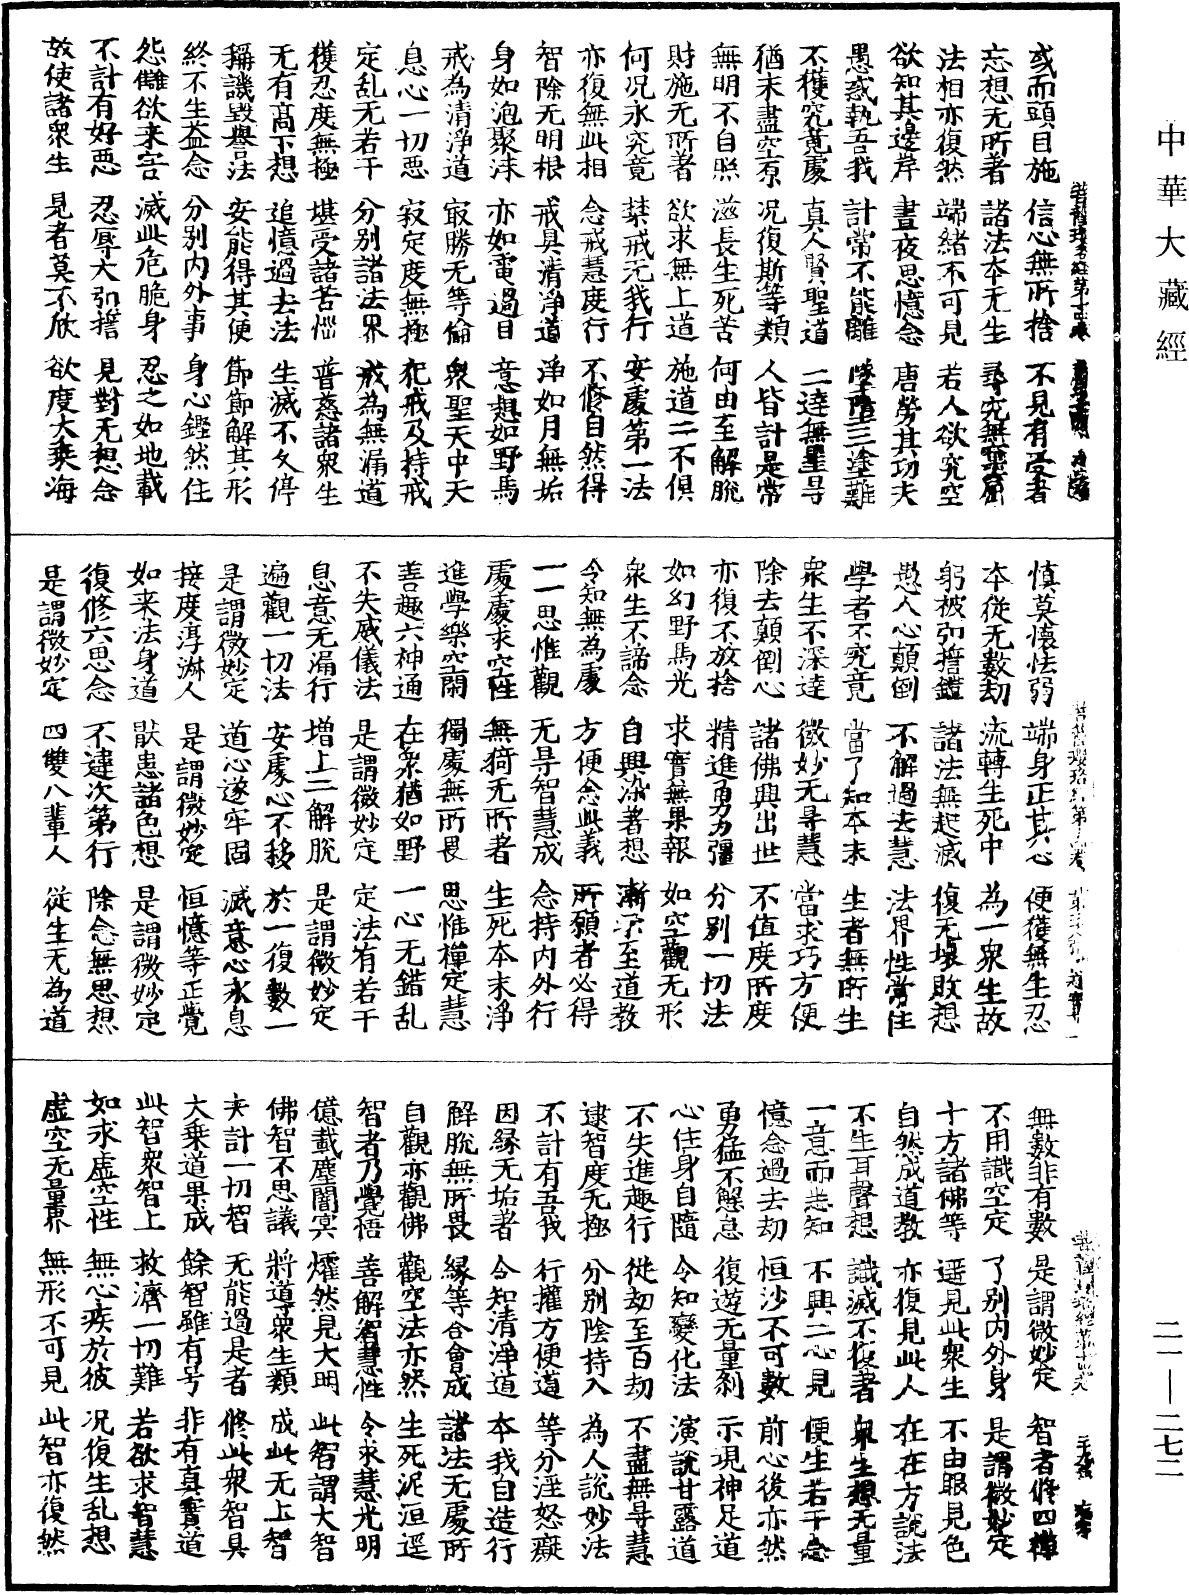 中華大藏經
或而頭目施 信心無所捨 不見有受者
忘想无所著 諸法本无生 尋究無窠窟
法相亦復然 端緒不可見 若人欲究空
欲知其邊岸 晝夜思憶念 唐勞其功夫
愚惑執吾我 計常不能離 墜墮三塗難
不獲究竟處 真人賢聖道 二達無罣导
猶未盡空原 况復斯等類 人皆計是常
無明不自照 滋長生死苦 何由至解脫
財施无所著 欲求無上道 施道二不俱
何况永究竟 禁戒无我行 安處第一法
亦復無此相 念戒慧度行 不修自然得
智除无明根 戒具清淨道 淨如月無垢
身如泡聚沫 亦如電過目 意想如野馬
戒為清淨道 㝡勝无等倫 衆聖天中天
息心一切惡 寂定度無極 犯戒及持戒
定乱无若干 分別諸法界 戒為無漏道
獲忍度無極 堪受諸苦惱 普慈諸衆生
无有高下想 追憶過去法 生滅不久停
稱譏毀譽法 安能得其便 節節解其形
終不生益念 分別内外事 身心鏗然住
怨讎欲来害 滅此危脆身 忍之如地載
不計有好惡 忍辱大弘擔 見對无想念
故使諸衆生 見者莫不欣 欲度大乘海
慎莫懷怯弱 端身正其心 便獲無生忍
本從无數劫 流轉生死中 為一衆生故
躬被弘擔鎧 諸法無起滅 復无壞敗想
愚人心顛倒 不解過去慧 法界性常住
學者不究竟 當了知本末 生者無所生
衆生不深達 微妙无导慧 當求巧方便
除去顛倒心 諸佛興出世 不值度所度
亦復不放捨 精進勇力彊 分別一切法
如幻野馬光 求實無果報 如空觀无形
衆生不諦念 自興染著想 漸漸至道教
令知無為處 方便念此義 所願者必得
一一思惟觀 无导智慧成 念持内外行
處處求空性 無猗无所著 生死本末淨
進學樂空閑 獨處無所畏 思惟禪定慧
善趣六神通 在衆猶如野 一心无錯乱
不失威儀法 是謂微妙定 定法有若干
息意无漏行 增上二解脫 是謂微妙定
遍觀一切法 安處心不移 於一復數一
是謂微妙定 道心遂牢固 滅意心永息
接度淳淋人 是謂微妙定 恒憶等正覺
如来法身道 猒患諸色想 是謂微妙定
復修六思念 不違次第行 除念無思想
是謂微妙定 四雙八輩人 從生无為道
無數非有數 是謂微妙定 智者修四禪
不用識空定 了别内外身 是謂微妙定
十方諸佛等 遥見此衆生 不由眼見色
自然成道教 亦復見此人 在在方説法
不生耳聲想 識滅不復著 衆生想无量
一意而悉知 不興二心見 便生若干念
憶念過去劫 恒沙不可數 前心後亦然
勇猛不懈怠 復遊无量刹 示現神足道
心住身自隨 令知變化法 演説甘露道
不失進趣行 從劫至百劫 不盡無导慧
逮智度无極 分別陰持入 為人説妙法
不計有吾我 行權方便道 等分淫怒癡
因緣无垢著 令知清淨道 本我自造行
解脫無所畏 緣等合會成 諸法无處所
自觀亦觀佛 觀空法亦然 生死泥洹遥
智者乃覺悟 善解智慧性 令求慧光明
億載塵闇冥 燿然見大明 此智謂大智
佛智不思議 將導衆生類 成此无上智
夫計一切智 无能過是者 修此衆智具
大乘道果成 餘智雖有号 非有真實道
此智衆智上 救濟一切難 若欲求智慧
如求虚空性 無心疾於彼 况復生乱想
虚空无量界 無形不可見 此智亦復然
二一—二七二